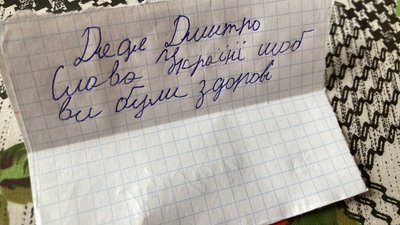 Дядя Дмитро
Слава Україні щоб
ви були здорові